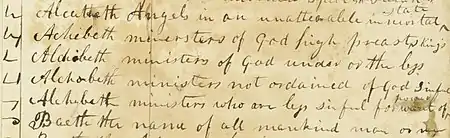 state
Alcatheth Angels in an unalterable immortal
Achebeth ministers of God high preasts Kings
Aldobeth ministers of God under or the less
Alchobeth ministers not ordained of God sinful
Alchebeth ministers who are less sinful for want of
Baeth the name of all mankind man or